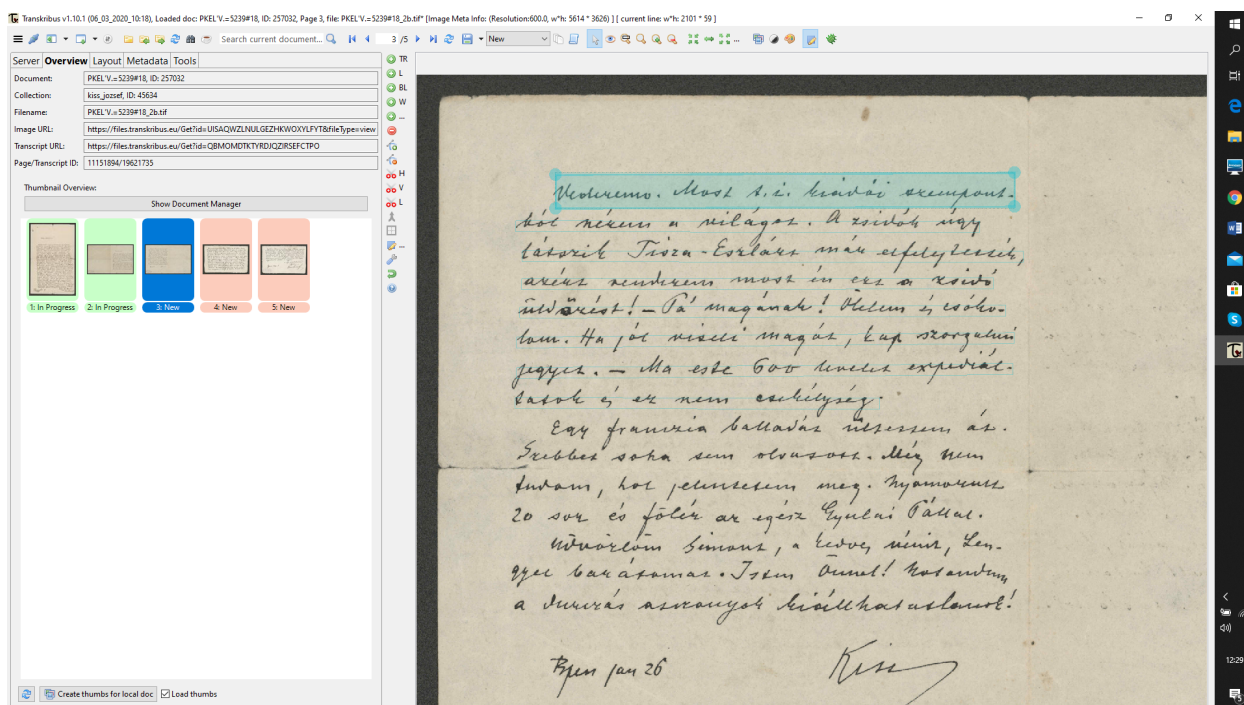 Transkribus v1.10.1 (06_03_2020_10:18), Loaded doc: PKEL'V.=5239#18, ID: 257032, Page 3, file: PKEL'V.=5239#18_2b.tif* [Image Meta Info: (Resolution:600.0, w*h: 5614 * 3626) ] [ current line: w*h: 2101 * 59 ]
Search current document...
3 /5
New
Server Overview Layout Metadata Tools
Document: PKEL'V.=5239#18, ID: 257032
Collection: kiss_jozsef, ID: 45634
Filename: PKEL'V.=5239#18_2b.tif
Image URL: https://files.transkribus.eu/Get?id=UISAQWZLNULGEZHKWOXYLFYT&fileType=view
Transcript URL: https://files.transkribus.eu/Get?id=QBMOMDTKTYRDJQZIRSEFCTPO
Page/Transcript ID: 11151894/19621735
Thumbnail Overview:
Show Document Manager
1: In Progress
2: In Progress
3: New
4: New
5: New
Create thumbs for local doc
Load thumbs
TR
L
BL
W
...
H
V
L
Vederemo. Most t.i. kiadói szempont-
ból nézem a világot. A zsidók úgy
látszik Tisza-Eszlárt már elfelejtették,
azért rendezem most én ezt a zsidó
üldözést! – Pá magának! Ölelem és csóko-
lom. Ha jól viseli magát, kap szorgalmi
jegyet. – Ma este 600 levelet expediál-
tatok és ez nem csekélység.
Egy franczia balladát ültettem át.
Szebbet soha sem olvasott. Még nem
tudom, hol jelentetem meg. Nyomorult
20 sor és fölér az egész Gyulai Pállal.
Üdvözlöm Simont, a kedves nénit, Len-
gyel barátomat. Isten Önnel!
a asszonyok kiállhatatlanok!
Bpen jan 26
Kiss
12:29